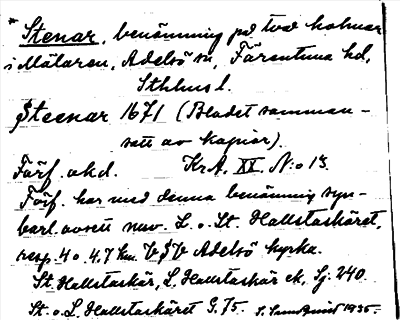 * Stenar, benämning på två holmar
i Mälaren, Adelsö sn, Färentuna hd,
Sthlms l.
Steenar 1671 (Bladet samman-
satt av kopior).
Förf. okd. KrA. XX. N:o 13.
Förf. har med denna benämning syn-
barl. avsett nuv. L. o. St. Hallstaskäret,
resp. 4 o. 4,7 km. V § V Adelsö kyrka.
St. Hallstaskär, L. Hallstaskär ek, Sj: 240.
St. o. L. Hallstaskäret G. 75. 1935.